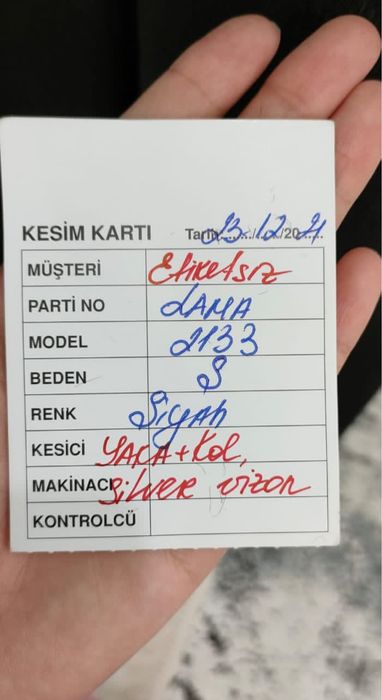 KESİM KARTI Tarih 23/12/2021
MÜŞTERİ Etiketsiz
PARTİ NO LAMA
MODEL 2133
BEDEN S
RENK Siyah
KESİCİ YAKA+Kol,
MAKİNACI Silver vizon
KONTROLCÜ